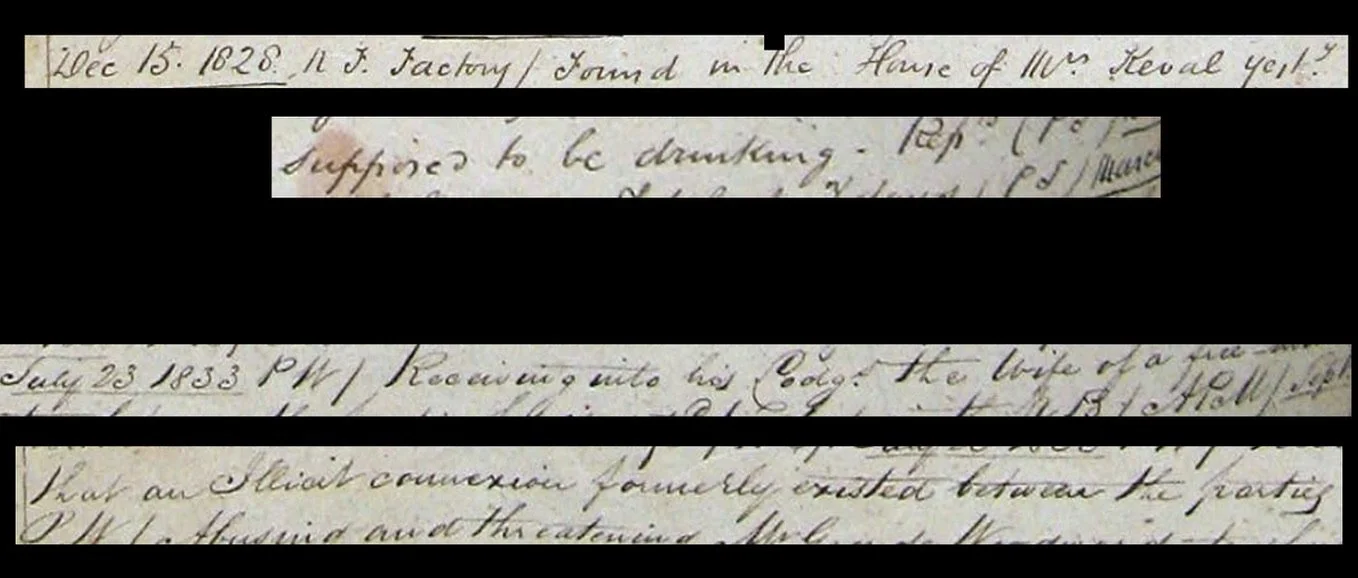 Dec 15. 1828. N F. Factory/ Found in the House of Mrs Keval yesty
supposed to be drinking. Repd. (PS
July 23 1833 PW/ Receiving into his Lodgs. the Wife of a free
that an Illicit connexion formerly existed between the parties
PW/ Abusing and threatening Mr